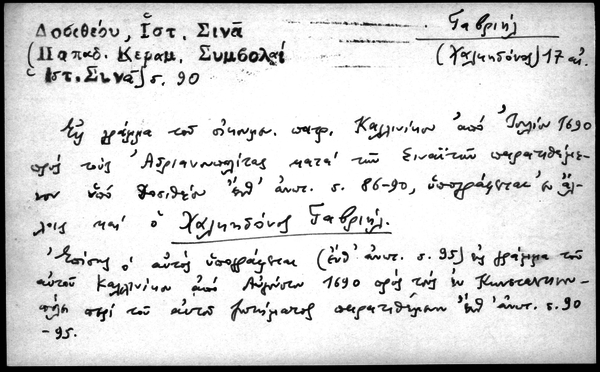 Δοσιθέου, Ἱστ. Σινᾶ
Γαβριήλ
(Παπαδ. Κεραμ. Συμβολαί
(Χαλκηδόνος) 17 αἰ.
Ἱστ. Σινᾶ) σ. 90
Εἰς γράμμα τοῦ οἰκουμ. πατρ. Καλλινίκου ἀπό Ἰουλίου 1690
πρός τούς Ἀδριανουπολίτας κατά τῶν Σιναϊτῶν παρατιθέμε-
νον ὑπό Δοσιθέου ἔνθ' ἀνωτ. σ. 86-90, ὑπογράφεται ἐν ἄλ-
λοις καί ὁ Χαλκηδόνος Γαβριήλ.
Ἐπίσης ὁ αὐτός ὑπογράφεται (ἔνθ' ἀνωτ. σ. 95) εἰς γράμμα τοῦ
αὐτοῦ Καλλινίκου ἀπό Αὐγούστου 1690 πρός τούς ἐν Κωνσταντινου-
πόλει περί τοῦ αὐτοῦ ζητήματος παρατιθέμενον ἔνθ' ἀνωτ. σ. 90
-95.